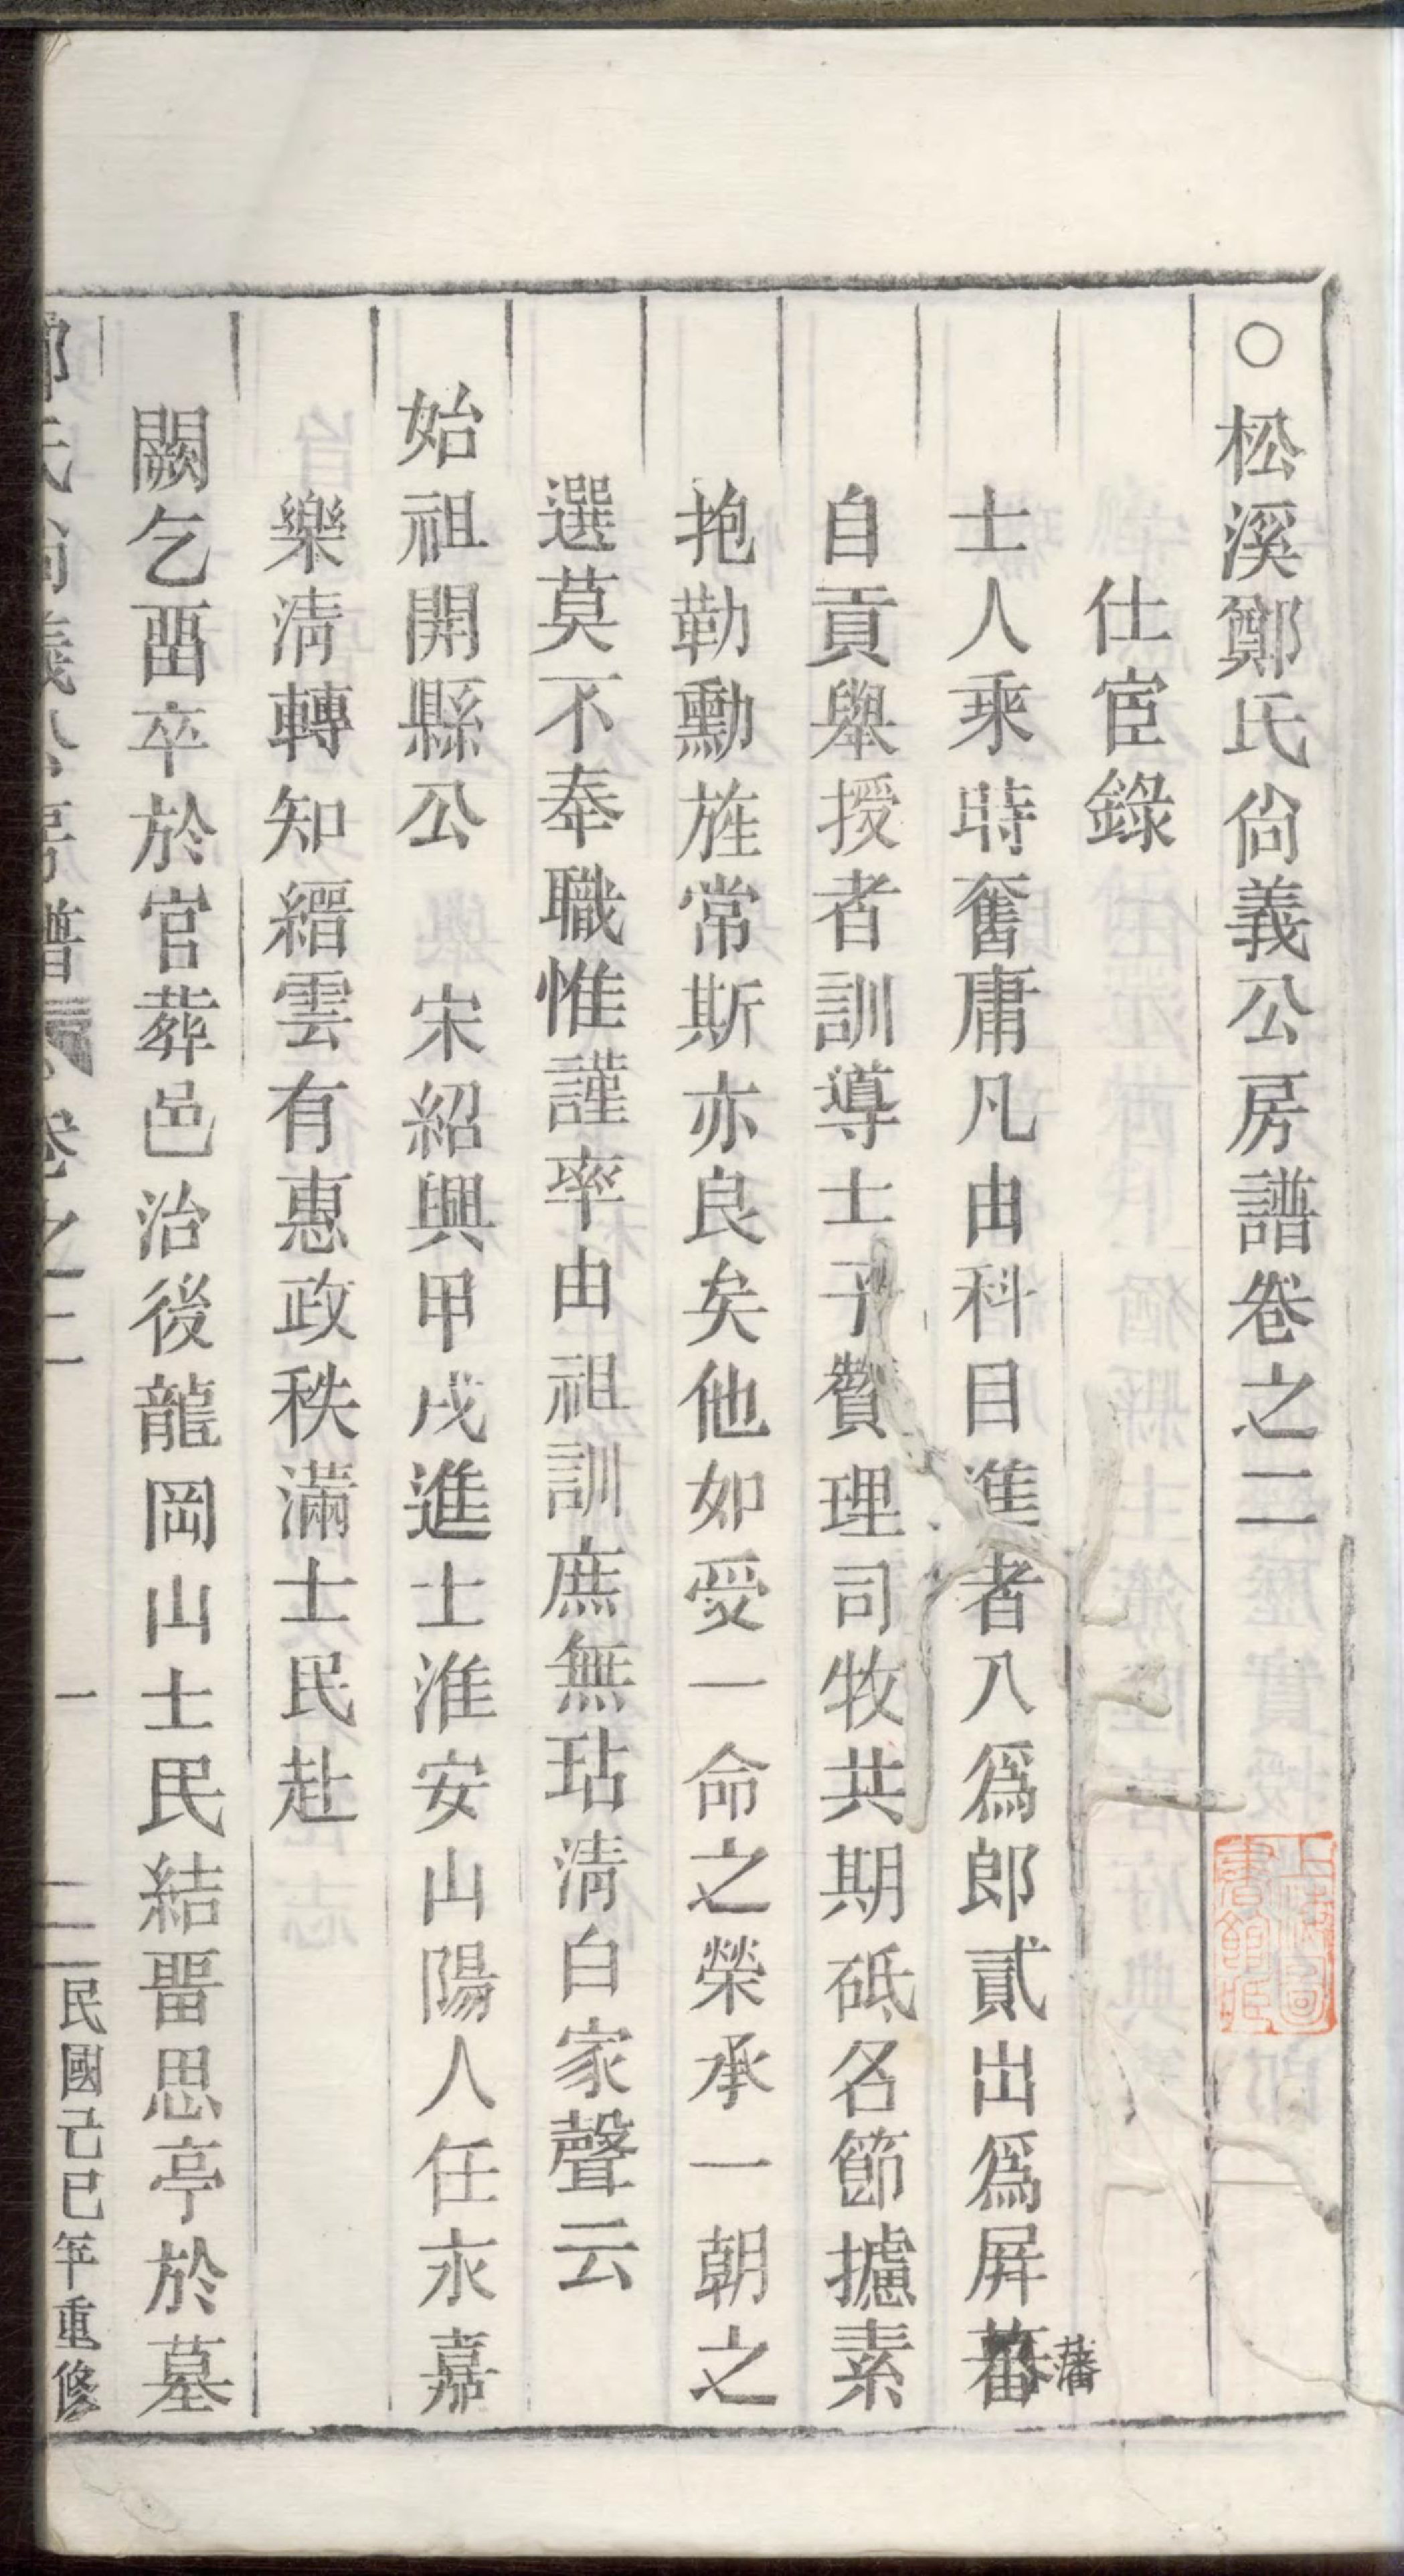 ○松溪鄭氏尙義公房譜卷之二
仕宦錄
士人乘時奮庸凡由科目進者入爲郎貳出爲屏蕃
藩
自貢舉授者訓導士子贊理司牧共期砥名節攄素
抱勒勳旌常斯亦良矣他如受一命之榮承一朝之
選莫不奉職惟謹率由祖訓庶無玷淸白家聲云
始祖開縣公　宋紹興甲戌進士淮安山陽人任永嘉
樂淸轉知縉雲有惠政秩滿士民赴
闕乞畱卒於官葬邑治後龍岡山士民結畱思亭於墓
鄭氏尙義公房譜　卷之二　一　民國己巳年重修
上海圖書館藏